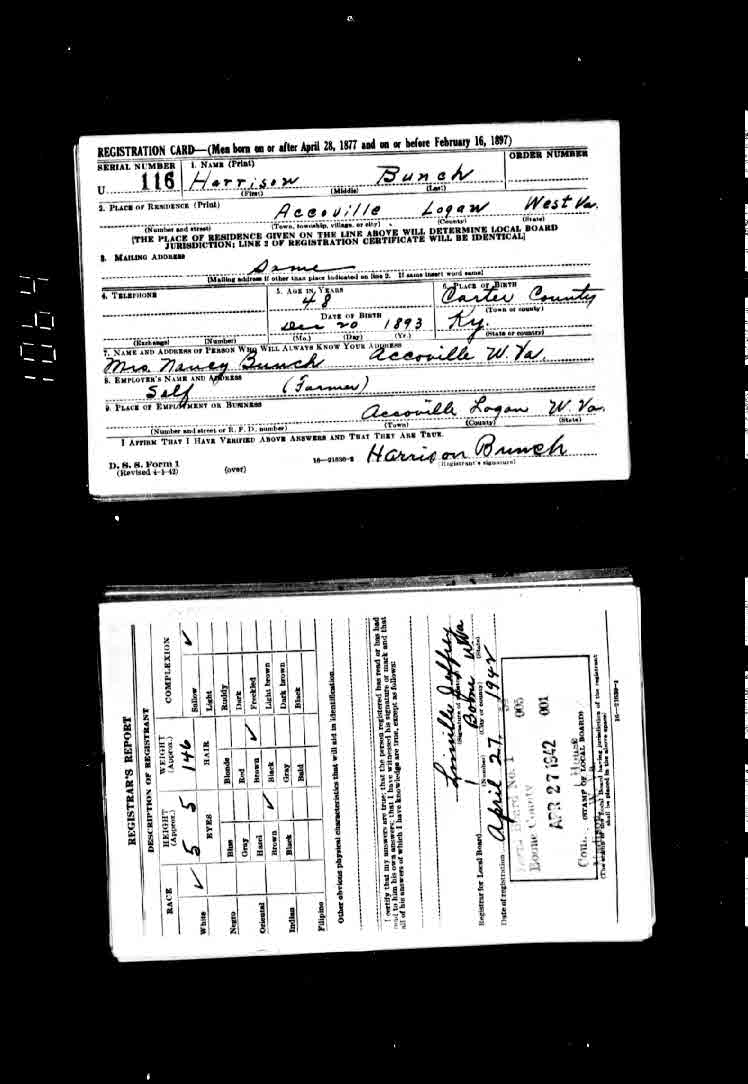 REGISTRATION CARD—(Men born on or after April 28, 1877 and on or before February 16, 1897)
SERIAL NUMBER 1. NAME (Print) ORDER NUMBER
U 116 Harrison Bunch
(First) (Middle) (Last)
2. PLACE OF RESIDENCE (Print)
Accoville Logan West Va.
(Number and street) (Town, township, village, or city) (County) (State)
[THE PLACE OF RESIDENCE GIVEN ON THE LINE ABOVE WILL DETERMINE LOCAL BOARD
JURISDICTION; LINE 2 OF REGISTRATION CERTIFICATE WILL BE IDENTICAL]
3. MAILING ADDRESS
Same
[Mailing address if other than place indicated on line 2. If same insert word same]
4. TELEPHONE 5. AGE IN YEARS 6. PLACE OF BIRTH
48 Carter County
DATE OF BIRTH (Town or county)
Dec 20 1893 Ky.
(Exchange) (Number) (Mo.) (Day) (Yr.) (State or country)
7. NAME AND ADDRESS OF PERSON WHO WILL ALWAYS KNOW YOUR ADDRESS
Mrs. Nancy Bunch Accoville W. Va.
8. EMPLOYER'S NAME AND ADDRESS
Self (Farmer)
9. PLACE OF EMPLOYMENT OR BUSINESS
Accoville Logan W. Va.
(Number and street or R. F. D. number) (Town) (County) (State)
I AFFIRM THAT I HAVE VERIFIED ABOVE ANSWERS AND THAT THEY ARE TRUE.
D. S. S. Form 1
(Revised 4-1-42) (over) 16—21630-2 Harrison Bunch
(Registrant's signature)
1064
REGISTRAR'S REPORT
DESCRIPTION OF REGISTRANT
RACE HEIGHT (Approx.) WEIGHT (Approx.) COMPLEXION
White ✓ 5 5 146 Sallow ✓
EYES HAIR Light
Negro Blue Blonde Ruddy
Gray Red Dark
Oriental Hazel Brown ✓ Freckled
Brown ✓ Black Light brown
Indian Black Gray Dark brown
Bald Black
Filipino
Other obvious physical characteristics that will aid in identification
I certify that my answers are true; that the person registered has read or has had
read to him his own answers; that I have witnessed his signature or mark and that
all of his answers of which I have knowledge are true, except as follows:
(Signature of registrar)
Registrar for Local Board 1 Boone W Va
(Number) (City or county) (State)
Date of registration April 27, 1942
No. 1
Boone County 005
APR 27 1942 001
(STAMP OF LOCAL BOARD)
(The stamp of the Local Board having jurisdiction of the registrant
shall be placed in the above space)
16—21630-1